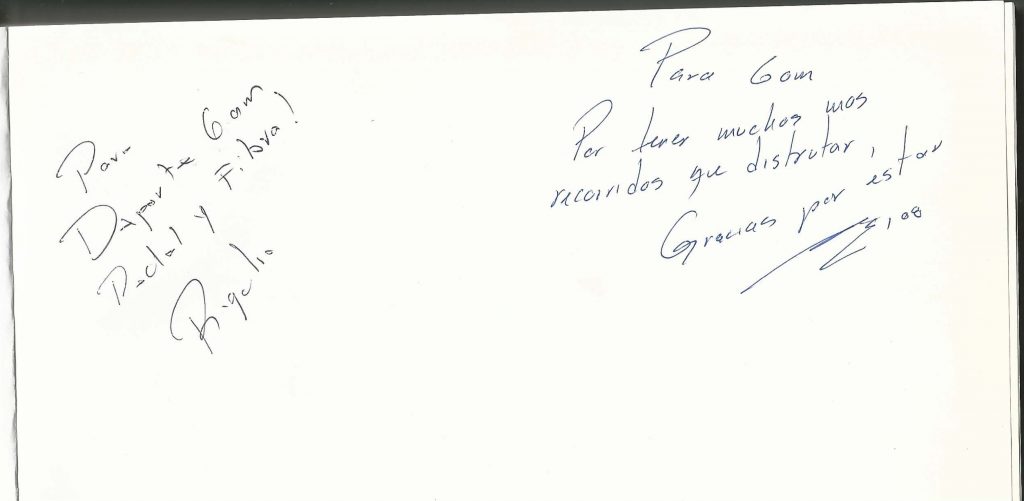 Para
Deporte 6 am
Pedal y Fibra!
Rigo
Para 6 am
Por tener muchos mas
recorridos que disfrutar,
Gracias por estar